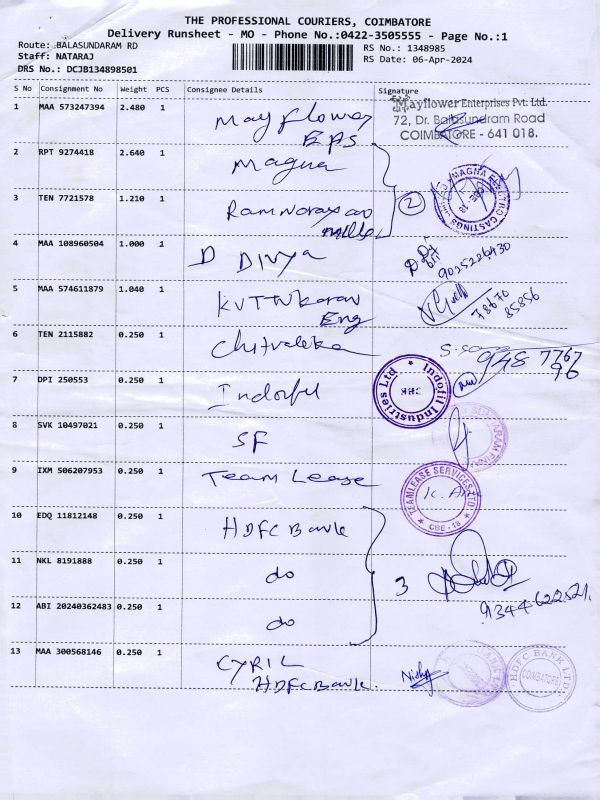 THE PROFESSIONAL COURIERS, COIMBATORE
Delivery Runsheet - MO - Phone No.:0422-3505555 - Page No.:1
Route: BALASUNDARAM RD
Staff: NATARAJ
DRS No.: DCJB134898501
RS No.: 1348985
RS Date: 06-Apr-2024
S No Consignment No Weight PCS Consignee Details Signature
1 MAA 573247394 2.480 1 Mayflower EPS
Mayflower Enterprises Pvt. Ltd.
72, Dr. Balasundram Road
COIMBATORE - 641 018.
2 RPT 9274418 2.640 1 Magna
3 TEN 7721578 1.210 1 Ramnarayan Mills 2
4 MAA 108960504 1.000 1 D Divya 9025226930
5 MAA 574611879 1.040 1 KVT Nkaran Eng 78670 85856
6 TEN 2115882 0.250 1 Chitraleka 948 7767 96
7 DPI 250553 0.250 1 Indofil
Indofil Industries Ltd
CBE
8 SVK 10497021 0.250 1 SF
9 IXM 506207953 0.250 1 Team Lease
TEAMLEASE SERVICES LTD
CBE - 18
10 EDQ 11812148 0.250 1 HDFC Bank
11 NKL 8191888 0.250 1 do 3
12 ABI 20240362483 0.250 1 do 9344622521
13 MAA 300568146 0.250 1 CYRIL HDFC Bank
HDFC BANK LTD
COIMBATORE